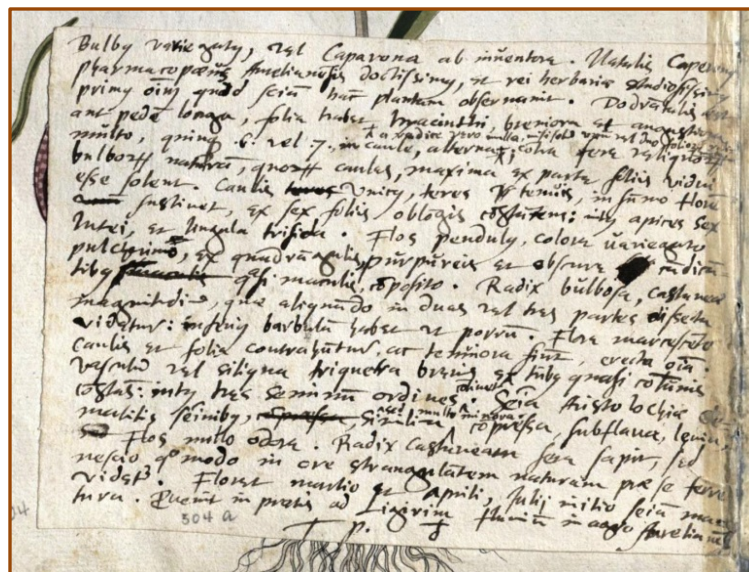 Bulbus variegatus, vel Caparona ab inventore. Natalis Caperon
pharmacopœus Aurelianensis doctissimus, et rei herbariæ studiosissimus
primus oim quod sciam hanc plantam observavit. Dodrantalis est
aut pedē longa, folia habet hyacinthi breviora et angustiora
multo, quinq. 6. vel 7. in caule, alterna,
a radice vero nulla, nisi
cōtra fere reliquorū
bulborū naturā, quorū caules, maxima ex parte foliis vidui
esse solent. Caulis unicus, teres et tenuis, in summo florē
sustinet, ex sex foliis oblōgis cōstātem: intus apices sex
lutei, et lingula trifida. Flos pendulus, colore variegato
pulcherrimo, ex quadrāgulis purpureis et obscure cādicā
tibus quasi maculis, cōposito. Radix bulbosa, castaneæ
magnitudine, quæ aliquādo in duas vel tres partes dissecta
videtur: inferius barbulā habet ut porrū. Flore marcescēte
caulis et folia contrahūtur, ac tenuiora fiūt, erecta oīa.
vasculū vel siliqua triquetra brevis ex tubis quasi cōtinuis
cōstās: intus tres seminum ordines cōtinet. Seīa Aristolochiæ
seīnibus, similia sed multo minora, cōpressa, subflava, levia,
Flos nullo odore. Radix castaneam fere sapit, sed
nescio quomodo in ore strangulātem naturam præ se ferre
videtur. Floret martio et Aprili, Julij initio seīa ma
tura. Provenit in pratis ad Ligerim fluviū in agro Aurelianensi
504 a